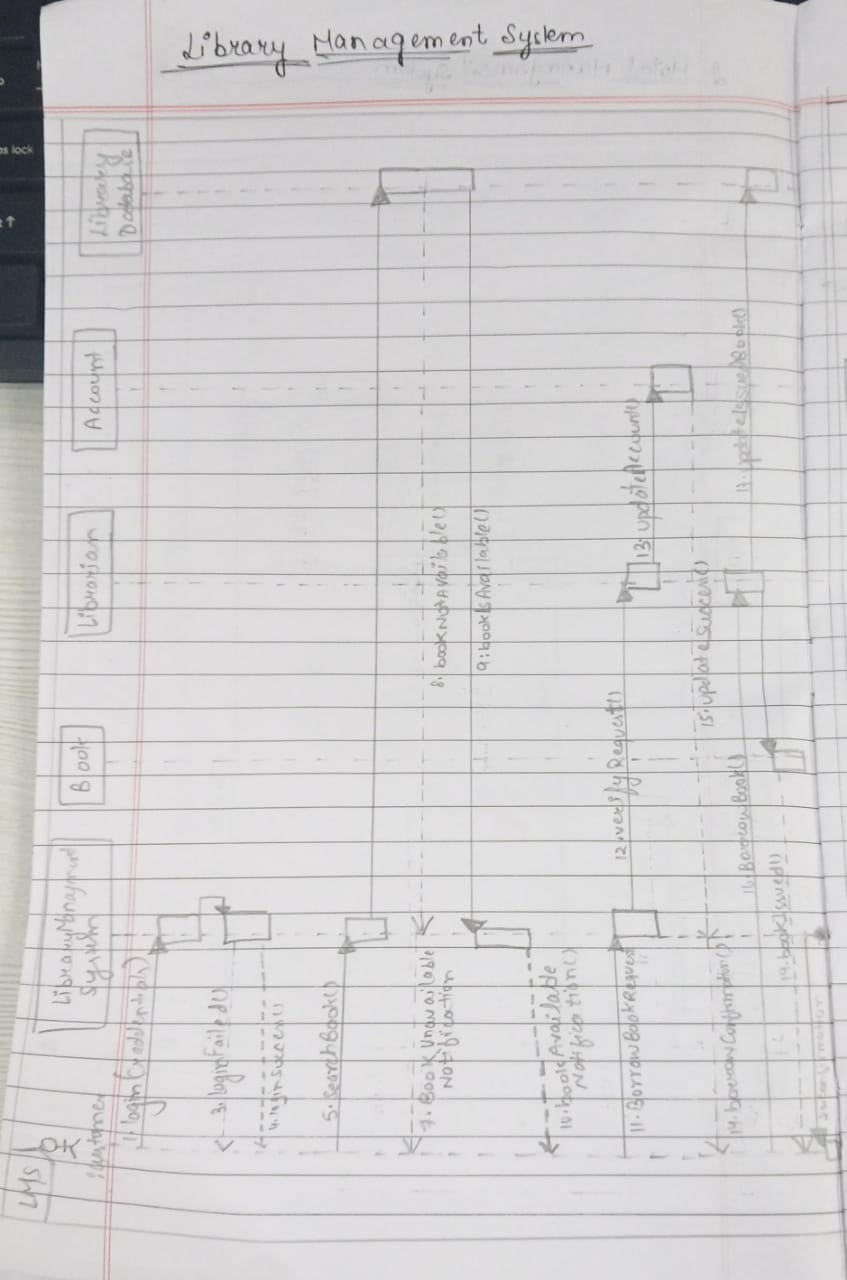 Library Management System
LMS
Customer
Library Management
System
Book
Librarian
Account
Library
Database
1: login(
3: loginFailed()
4: loginSuccess()
5: SearchBook()
7: Book Unavailable
Notification
8: bookNotAvailable()
9: bookIsAvailable()
10: bookAvailable
Notification()
11: BorrowBookRequest
12: verifyRequest()
13: updateAccount()
14: borrowConfirmation()
15: updateSuccess()
16: BorrowBook()
17: updateIssuedBook()
19: bookIssued()
os lock